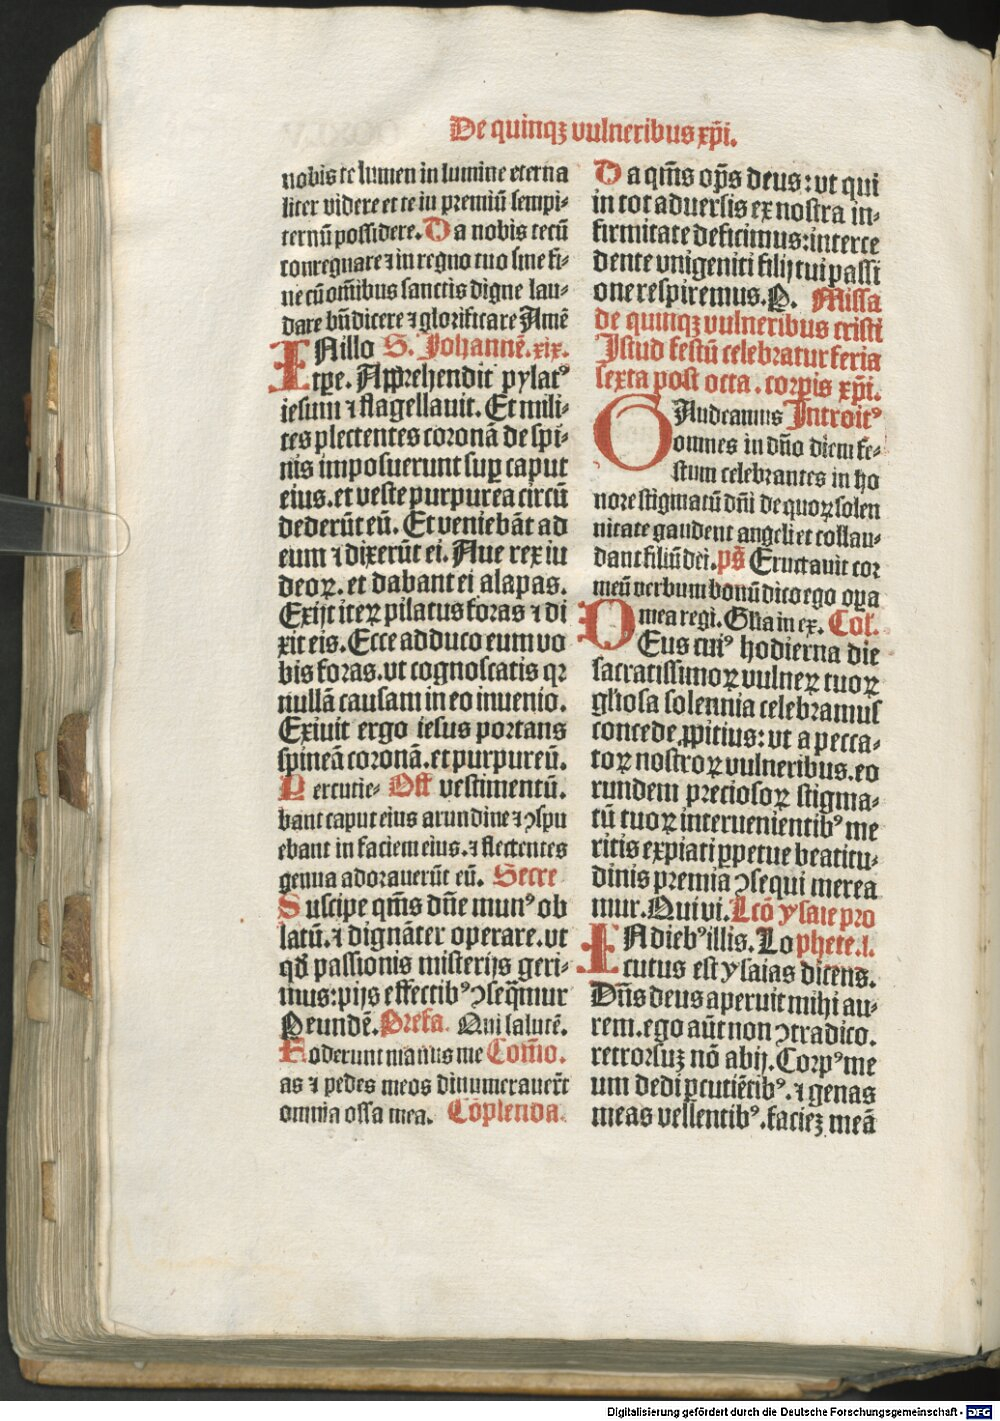 De quinqꝫ vulneribus xp̄i.
nobis te lumen in lumine eterna
liter videre et te in premiū sempi⸗
ternū possidere. Da nobis tecū
conregnare ⁊ in regno tuo sine fi⸗
ne cū om̄ibus sanctis digne lau⸗
dare bn̄dicere ⁊ glorificare Amē
IN illo S. Johannē. xix.
tꝑe. Apprehendit pylatꝰ
iesum ⁊ flagellauit. Et mili⸗
tes plectentes coronā de spi⸗
nis imposuerunt suꝑ caput
eius. et veste purpurea circū
dederūt eū. Et veniebāt ad
eum ⁊ dixerūt ei. Aue rex iu
deoꝝ. et dabant ei alapas.
Exijt iteꝝ pilatus foras ⁊ di
xit eis. Ecce adduco eum vo
bis foras. vt cognoscatis qꝛ
nullā causam in eo inuenio.
Exiuit ergo iesus portans
spineā coronā. et purpureū.
Percutie⸗ Off vestimentū.
bant caput eius arundine ⁊ ꝯspu
ebant in faciem eius. ⁊ flectentes
genua adorauerūt eū. Secre
Suscipe qm̄s dn̄e munꝰ ob
latū. ⁊ dignāter operare. vt
qd̄ passionis misterijs geri⸗
mus: pijs effectibꝰ ꝯseq̄mur
Peundē. Prefa. Qui salutē.
Foderunt manus me Com̄o.
as ⁊ pedes meos dinumerauer̄t
omnia ossa mea. Cōplenda.
Da qm̄s op̄s deus: vt qui
in tot aduersis ex nostra in⸗
firmitate deficimus: interce
dente vnigeniti filij tui passi
one respiremus. P. Missa
de quinqꝫ vulneribus cristi
Istud festū celebratur feria
sexta post octa. corꝑis xp̄i.
GAudeamus Introitꝰ
omnes in dn̄o diem fe⸗
stum celebrantes in ho
nore stigmatū dn̄i de quoꝝ solen
nitate gaudent angeli et collau⸗
dant filiū dei. ps̄ Eructauit cor
meū verbum bonū dico ego oꝑa
mea regi. Gl̄ia in ex. Col̄.
DEus cuiꝰ hodierna die
sacratissimoꝝ vulneꝝ tuoꝝ
gl̄iosa solennia celebramus
concede ꝓpitius: vt a pecca⸗
toꝝ nostroꝝ vulneribus. eo
rundem preciosoꝝ stigma⸗
tū tuoꝝ interuenientibꝰ me
ritis expiati ꝑpetue beatitu⸗
dinis premia ꝯsequi merea
mur. Qui vi. Lcō ysaie pro
IN diebꝰ illis. Lo phete. l.
cutus est ysaias dicens.
Dn̄s deus aperuit mihi au⸗
rem. ego aūt non ꝯtradico.
retrorsuꝫ nō abij. Corpꝰ me
um dedi ꝑcutiētibꝰ. ⁊ genas
meas vellentibꝰ. facieꝫ meā
Digitalisierung gefördert durch die Deutsche Forschungsgemeinschaft - DFG